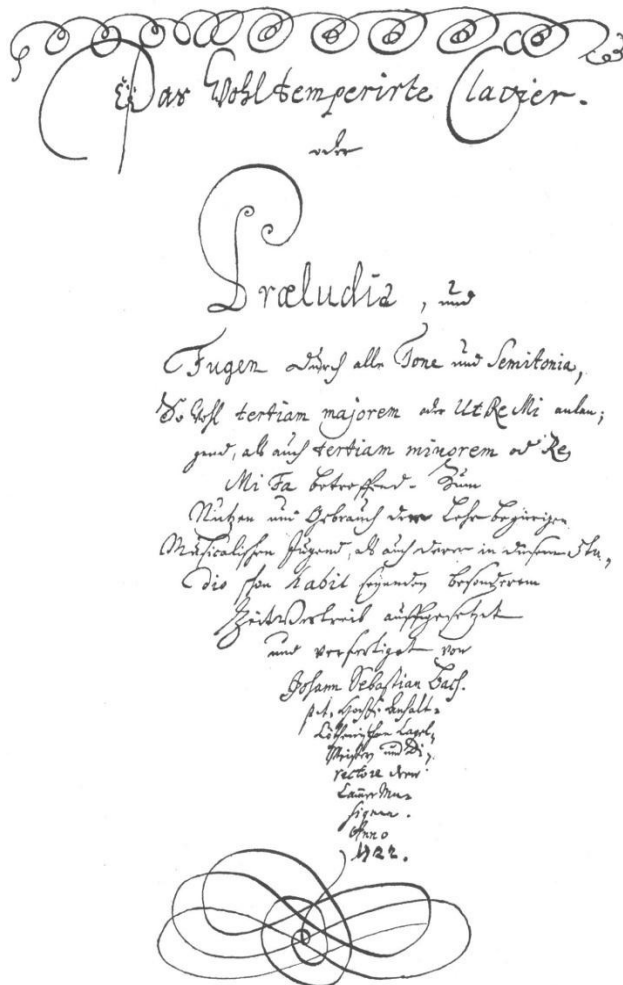 Das Wohltemperirte Clavier.
oder
Præludia, und
Fugen durch alle Tone und Semitonia,
So wohl tertiam majorem oder Ut Re Mi anlan,
gend, als auch tertiam minorem oder Re
Mi Fa betreffend. Zum
Nutzen und Gebrauch der Lehr-begierigen
Musicalischen Jugend, als auch derer in diesem stu,
dio schon habil seyenden besonderem
ZeitVertreib auffgesetzet
und verfertiget von
Johann Sebastian Bach.
p. t. Hochf. Anhalt-
Cöthenischen Capel-
Meistern und Di-
rectore derer
Cam̄er Mu-
siquen.
Anno
1722.